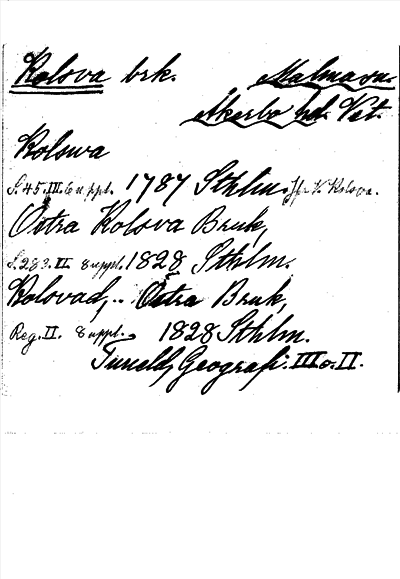 Kolsva brk. Malma sn.
Åkerbo hd. Vst.
Kolswa
S. 45. III. 6 uppl. 1787 Sthlm. Jfr V. Kolsva.
Östra Kolsva Bruk,
S. 283. II 8 uppl. 1828 Sthlm.
Kolsvad, .. Östra Bruk,
Reg. II. 8 uppl. 1828 Sthlm.
Tuneld, Geografi. III o. II.